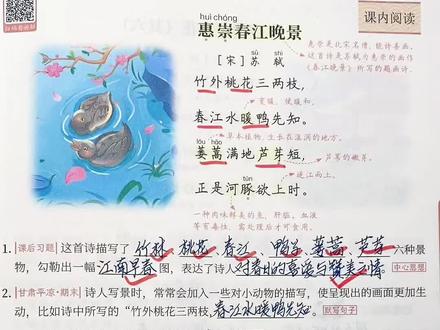 课内阅读
huì chóng
惠崇春江晚景
[宋] 苏 轼
sū shì
惠崇是北宋名僧，能诗善画。
这首诗是苏轼为惠崇的画作
《春江晚景》所写的题画诗。
竹外桃花三两枝，
变暖，使暖和。
春江水暖鸭先知。
草本植物，生长在湿润的地方。
lóu hāo
蒌蒿满地芦芽短，
芦苇的嫩芽。
逆江而上。
tún
正是河豚欲上时。
一种肉味鲜美的鱼，肝脏、血液
等有毒性，需处理后才可食用。
1. 课后习题 这首诗描写了 竹林、桃花、春江、鸭子、蒌蒿、芦芽 六种景
物，勾勒出一幅 江南早春 图，表达了诗人 对春日的喜爱与赞美之情 中心思想
2. 甘肃平凉·期末 诗人写景时，常常会加入一些对小动物的描写，使呈现出的画面更加生
动，比如诗中所写的“竹外桃花三两枝，春江水暖鸭先知。 默写句子